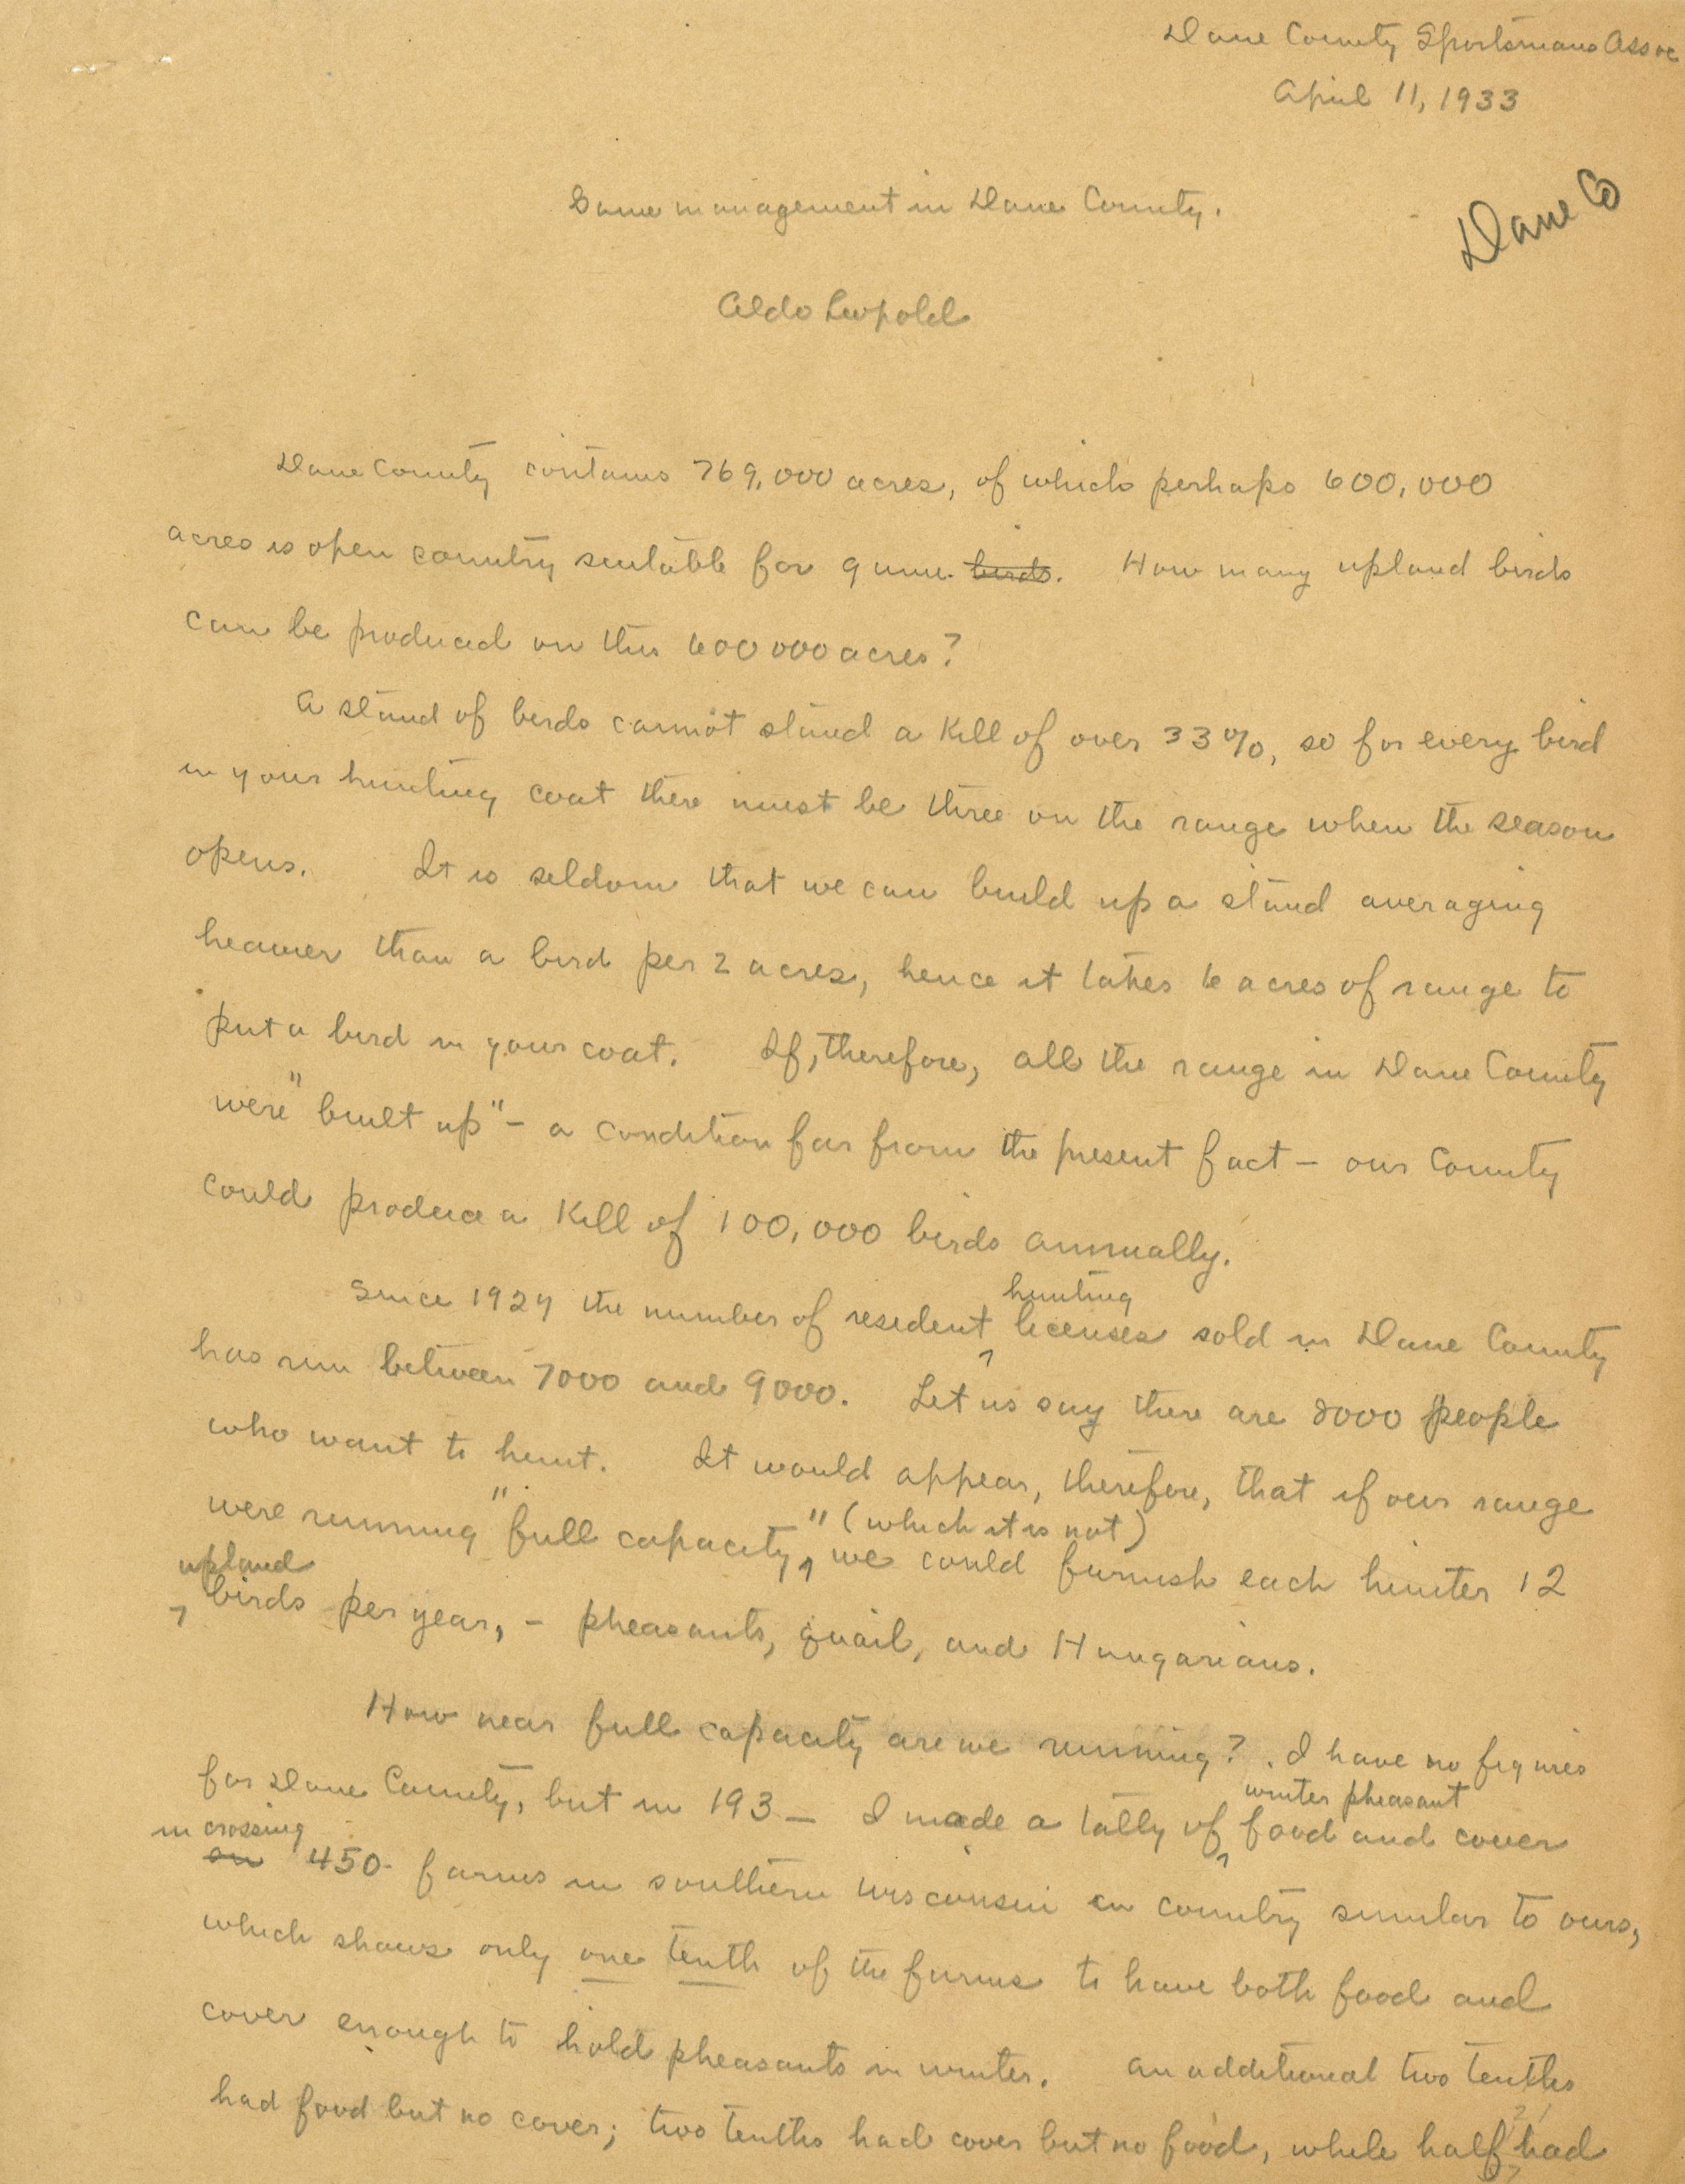 Dane County Sportsmans Assoc
April 11, 1933
Dane Co
Game management in Dane County.
Aldo Leopold
Dane County contains 769,000 acres, of which perhaps 600,000
acres is open country suitable for game birds. How many upland birds
can be produced on this 600 000 acres?
A stand of birds cannot stand a kill of over 33%, so for every bird
in your hunting coat there must be three on the range when the season
opens. It is seldom that we can build up a stand averaging
heavier than a bird per 2 acres, hence it takes 6 acres of range to
put a bird in your coat. If, therefore, all the range in Dane County
were "built up" – a condition far from the present fact – our County
could produce a kill of 100,000 birds annually.
hunting
Since 1927 the number of resident licenses sold in Dane County
has run between 7000 and 9000. Let us say there are 8000 people
who want to hunt. It would appear, therefore, that if our range
(which it is not)
were running "full capacity," we could furnish each hunter 12
upland
birds per year, – pheasants, quail, and Hungarians.
How near full capacity are we running? I have no figures
winter pheasant
for Dane County, but in 193_ I made a tally of food and cover
in crossing
on 450 farms in southern Wisconsin in country similar to ours,
which shows only one tenth of the farms to have both food and
cover enough to hold pheasants in winter. An additional two tenths
had food but no cover; two tenths had cover but no food, while half had